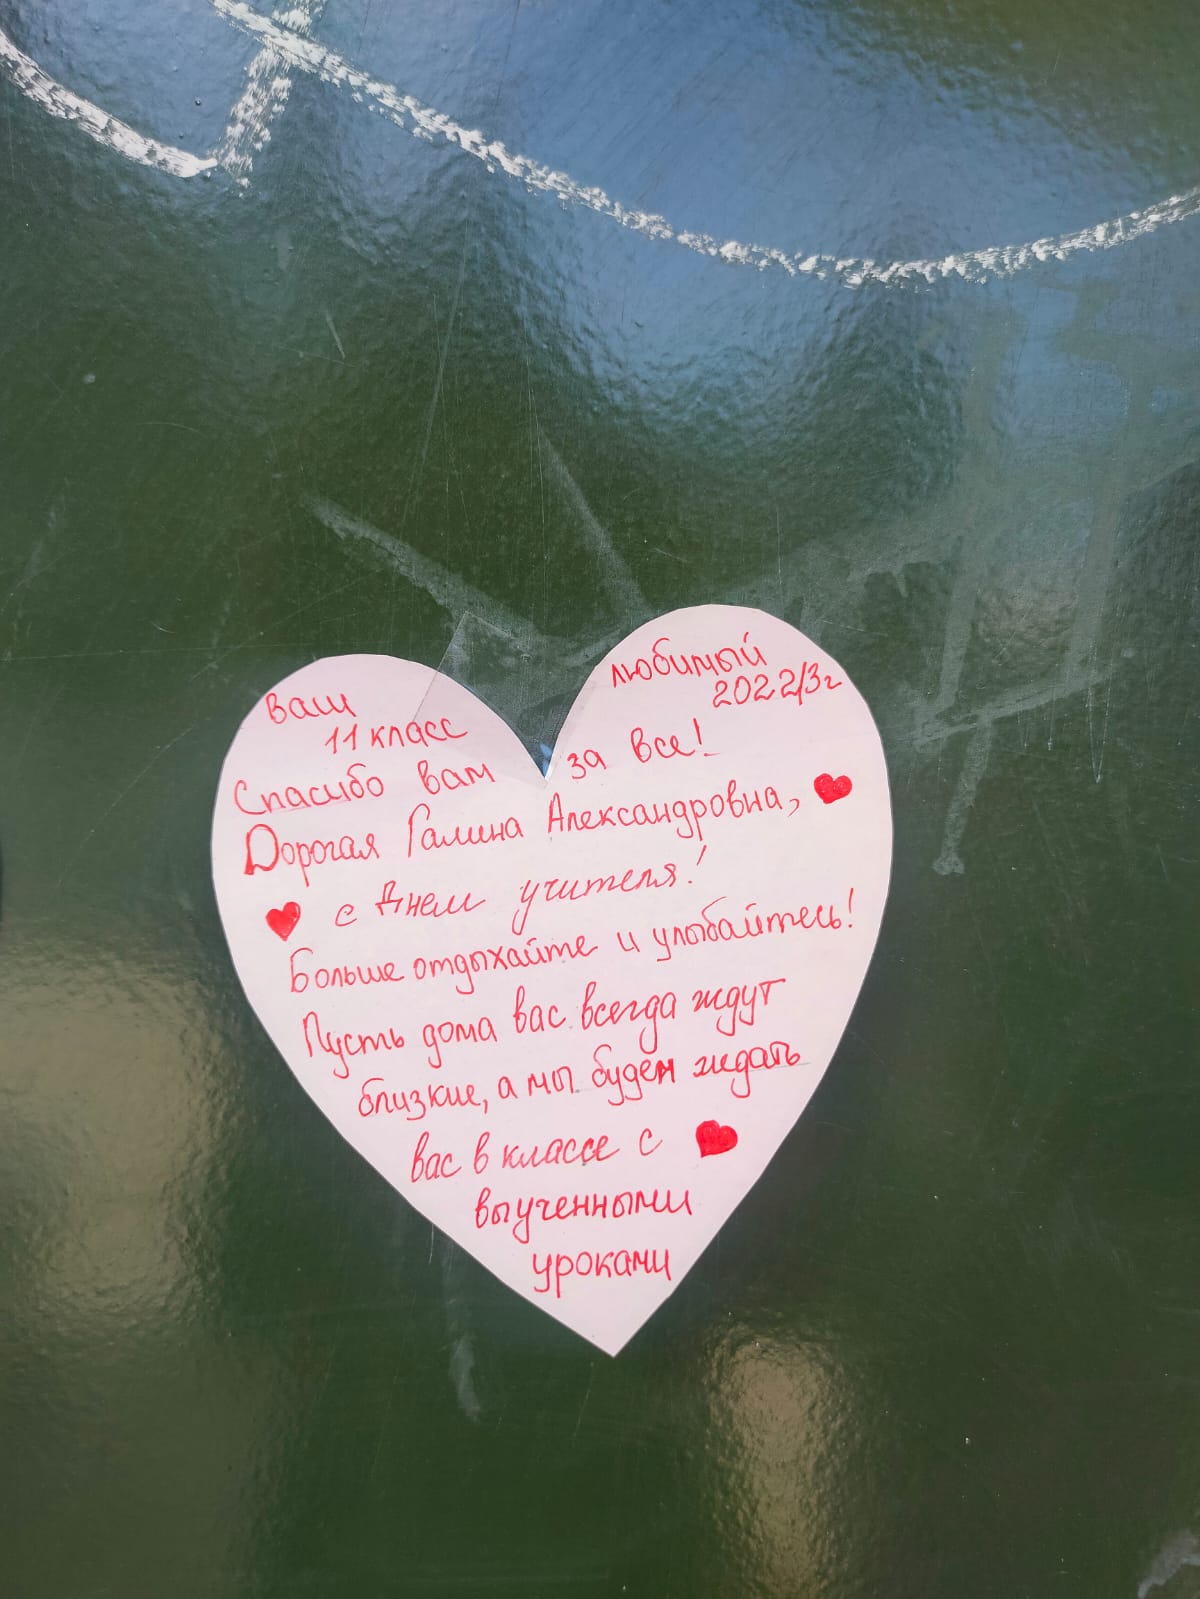 ваш
любимый
11 класс
2022/3г
Спасибо вам за все!
Дорогая Галина Александровна,
с Днем учителя!
Больше отдыхайте и улыбайтесь!
Пусть дома вас всегда ждут
близкие, а мы будем ждать
вас в классе с
выученными
уроками